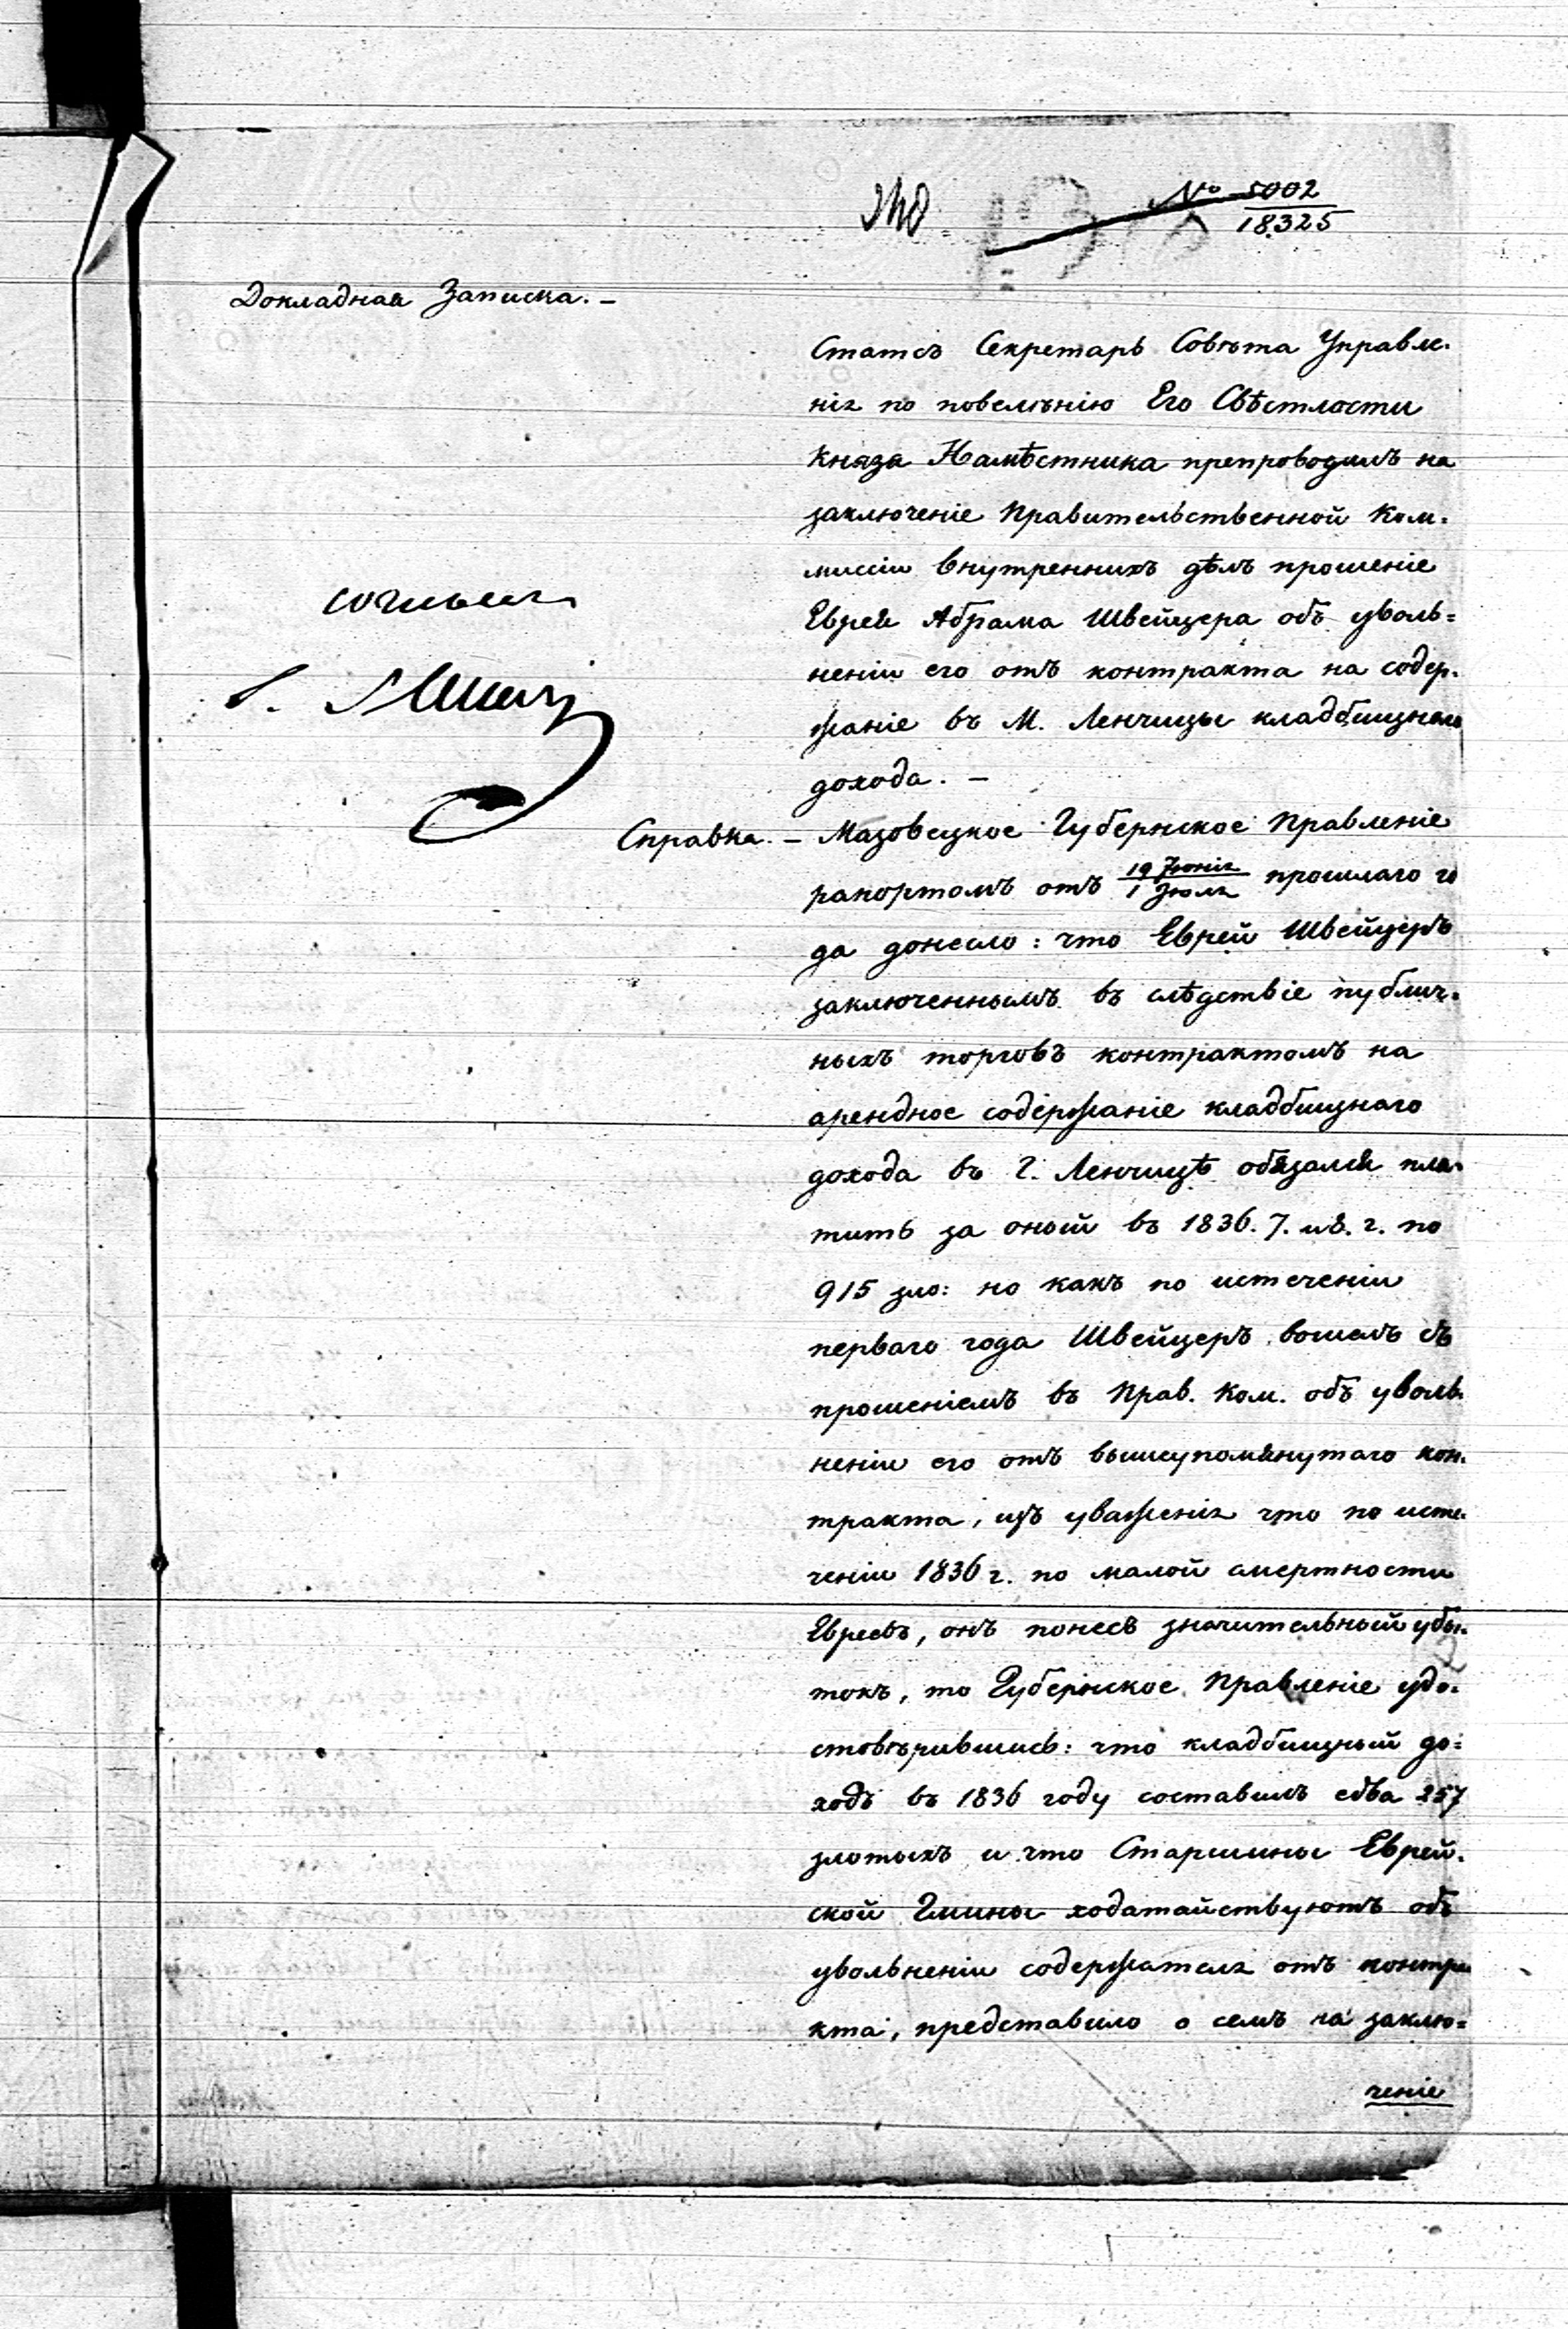 № 5002
18325
Докладная Записка. –
Статсъ Секретарь Совѣта Управле-
нія по повелѣнію Его Свѣтлости
Князя Намѣстника препроводилъ на
заключеніе Правительственной Ком-
миссіи Внутреннихъ дѣлъ прошеніе
Еврея Абрама Швейцера объ уволь=
неніи его отъ контракта на содер-
жаніе въ М. Ленчицы кладбищнаго
дохода. –
согласенъ
Справка. – Мазовецкое Губернское Правленіе
рапортомъ отъ 19 Іюня / 1 Іюля прошлаго го
да донесло: что Еврей Швейцеръ
заключеннымъ въ слѣдствіе публич-
ныхъ торговъ контрактомъ на
арендное содержаніе кладбищнаго
дохода въ г. Ленчицѣ обязался пла-
тить за оный въ 1836. 7. и 8. г. по
915 зло: но какъ по истеченіи
перваго года Швейцеръ вошелъ съ
прошеніемъ въ Прав. Ком. объ уволь-
неніи его отъ вышеупомянутаго кон-
тракта, изъ уваженія что по исте-
ченіи 1836 г. по малой смертности
Евреевъ, онъ понесъ значительный убы-
токъ, то Губернское Правленіе удо-
стовѣрившись: что кладбищный до=
ходъ въ 1836 году составилъ едва 257
злотыхъ и что Старшины Еврей-
ской Гмины ходатайствуютъ объ
увольненіи содержателя отъ контра
кта, представило о семъ на заклю=
ченіе